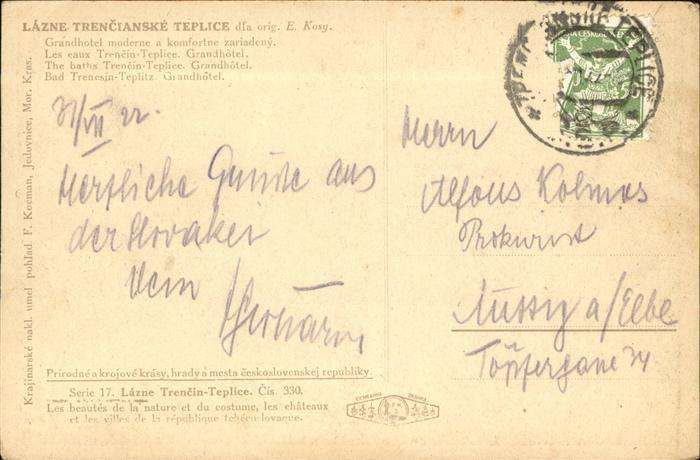 LÁZNE TRENČIANSKÉ TEPLICE dľa orig. E. Kosy.
Grandhotel moderne a komfortne zariadený.
Les eaux Trenčin-Teplice. Grandhôtel.
The baths Trenčin-Teplice. Grandhôtel.
Bad Trencsin-Teplitz. Grandhôtel.
Krajinarské nakl. umel pohlad F. Kocman, Jedovnice, Mor. Kras.
VII 22.
Herzliche Grüsse aus
der Slovakei
Herrn
Alfons Kolmas
Prokurist
Aussig a/Elbe
Töpfergasse 24
Prírodné a krojové krásy, hrady a mesta československej republiky
Serie 17. Lázne Trenčin-Teplice. Čís. 330.
Les beautés de la nature et du costume, les châteaux
et les villes de la république tchécoslovaque.
TEPLICE